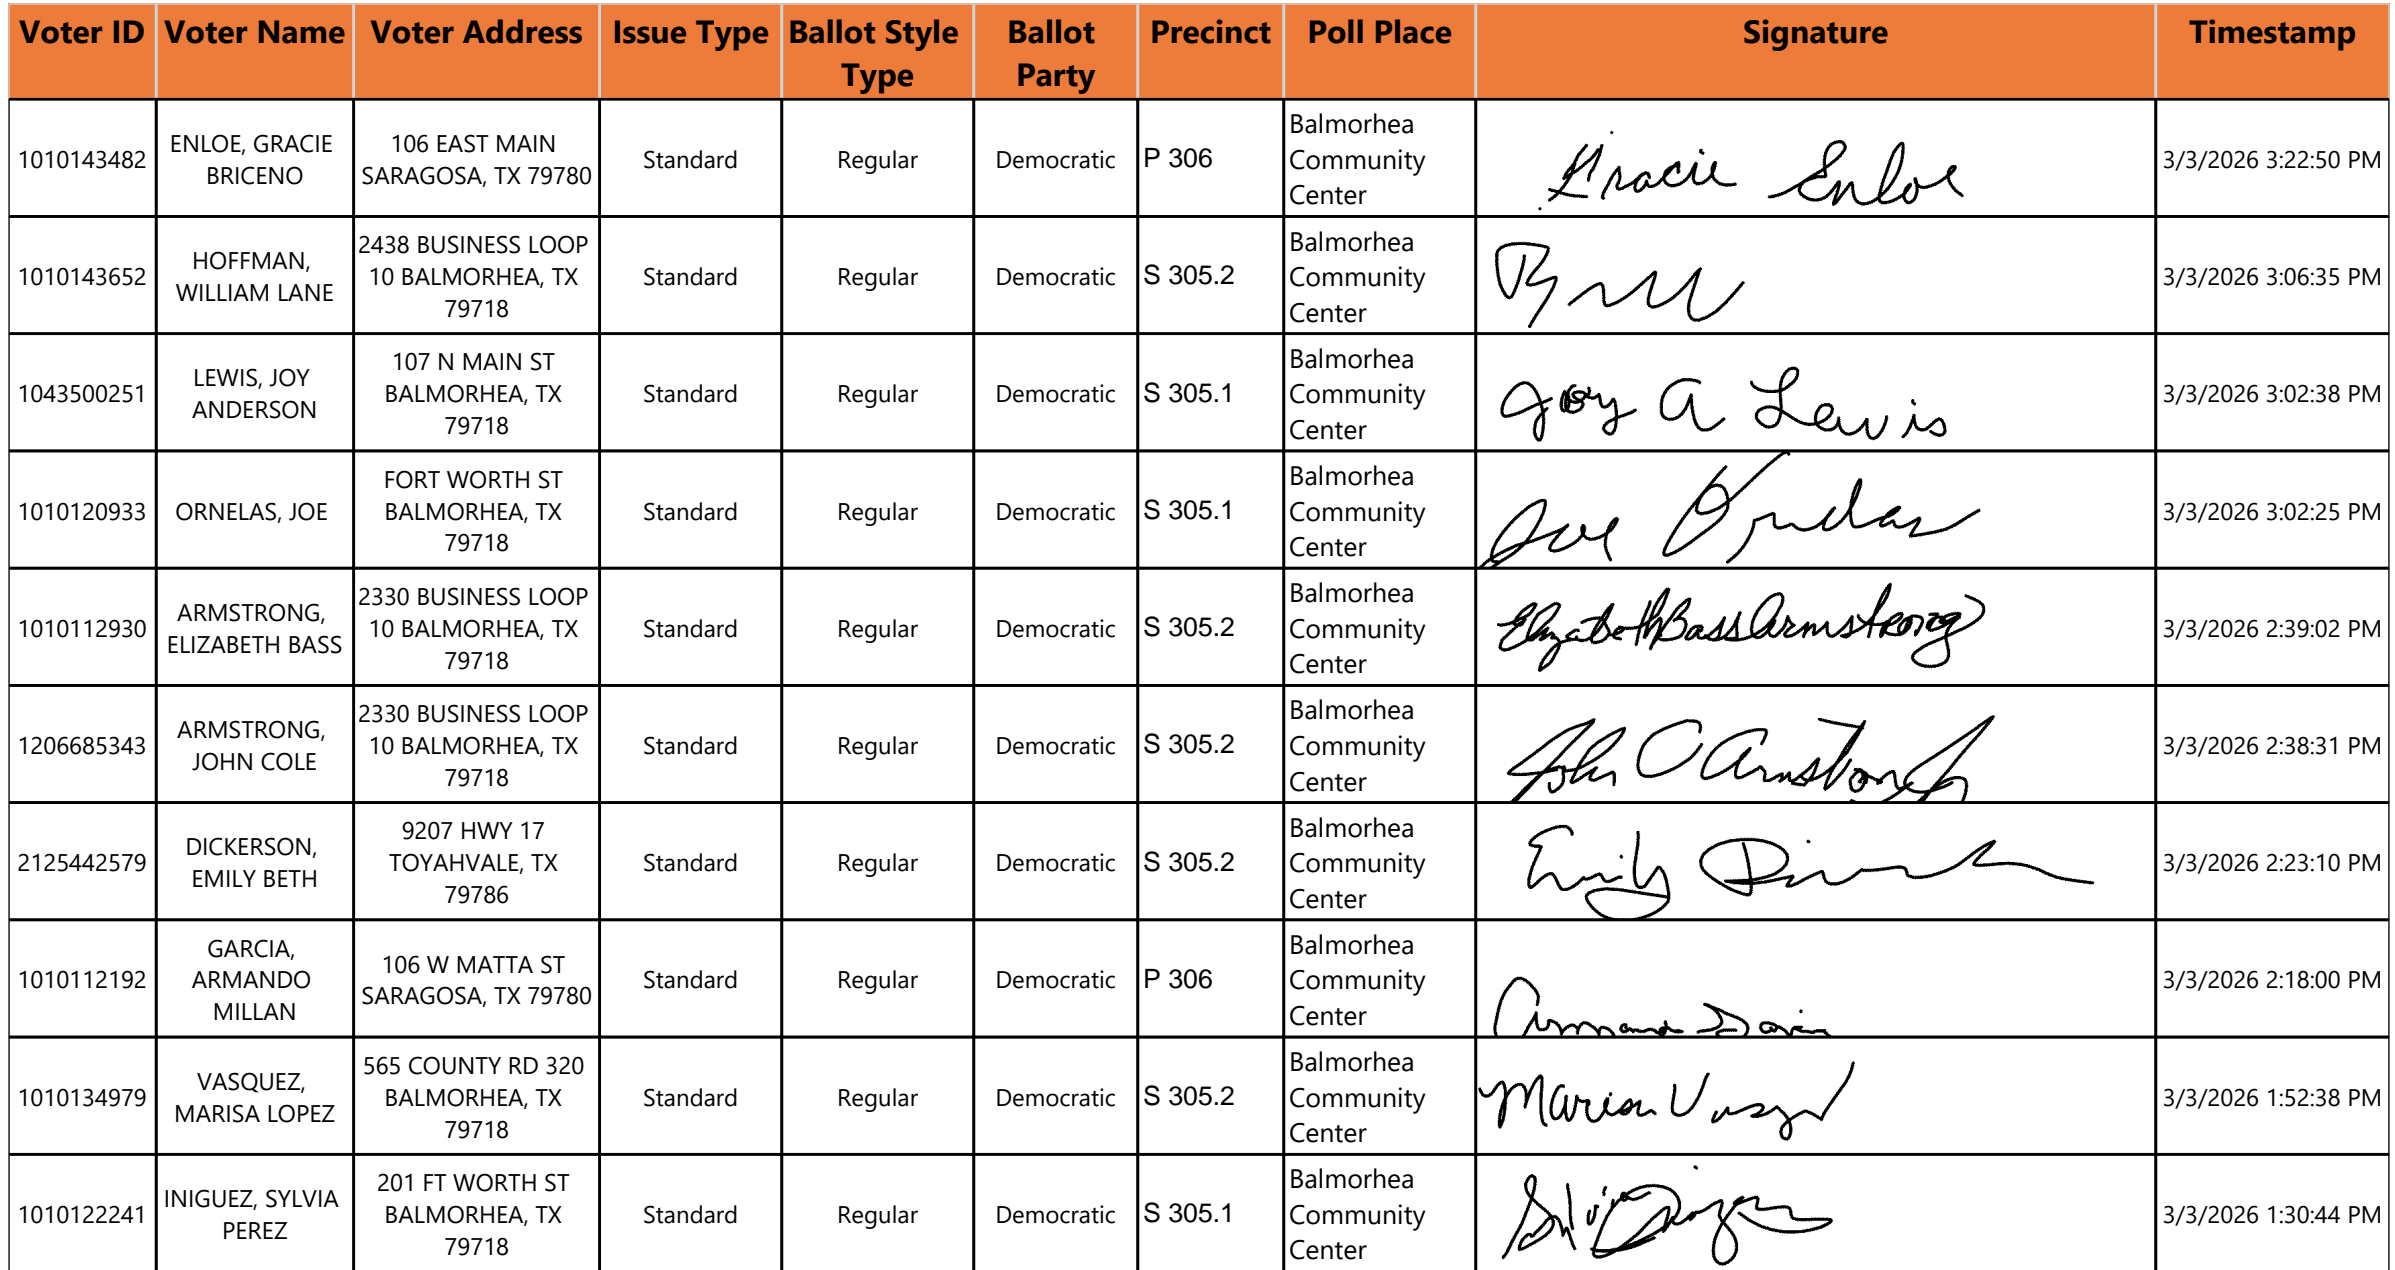 Voter ID Voter Name Voter Address Issue Type Ballot Style Type Ballot Party Precinct Poll Place Signature Timestamp
1010143482 ENLOE, GRACIE BRICENO 106 EAST MAIN SARAGOSA, TX 79780 Standard Regular Democratic P 306 Balmorhea Community Center Gracie Enloe 3/3/2026 3:22:50 PM
1010143652 HOFFMAN, WILLIAM LANE 2438 BUSINESS LOOP 10 BALMORHEA, TX 79718 Standard Regular Democratic S 305.2 Balmorhea Community Center 3/3/2026 3:06:35 PM
1043500251 LEWIS, JOY ANDERSON 107 N MAIN ST BALMORHEA, TX 79718 Standard Regular Democratic S 305.1 Balmorhea Community Center Joy A Lewis 3/3/2026 3:02:38 PM
1010120933 ORNELAS, JOE FORT WORTH ST BALMORHEA, TX 79718 Standard Regular Democratic S 305.1 Balmorhea Community Center Joe Ornelas 3/3/2026 3:02:25 PM
1010112930 ARMSTRONG, ELIZABETH BASS 2330 BUSINESS LOOP 10 BALMORHEA, TX 79718 Standard Regular Democratic S 305.2 Balmorhea Community Center Elizabeth Bass Armstrong 3/3/2026 2:39:02 PM
1206685343 ARMSTRONG, JOHN COLE 2330 BUSINESS LOOP 10 BALMORHEA, TX 79718 Standard Regular Democratic S 305.2 Balmorhea Community Center John C Armstrong Jr 3/3/2026 2:38:31 PM
2125442579 DICKERSON, EMILY BETH 9207 HWY 17 TOYAHVALE, TX 79786 Standard Regular Democratic S 305.2 Balmorhea Community Center Emily 3/3/2026 2:23:10 PM
1010112192 GARCIA, ARMANDO MILLAN 106 W MATTA ST SARAGOSA, TX 79780 Standard Regular Democratic P 306 Balmorhea Community Center Armando Garcia 3/3/2026 2:18:00 PM
1010134979 VASQUEZ, MARISA LOPEZ 565 COUNTY RD 320 BALMORHEA, TX 79718 Standard Regular Democratic S 305.2 Balmorhea Community Center Marisa Vasquez 3/3/2026 1:52:38 PM
1010122241 INIGUEZ, SYLVIA PEREZ 201 FT WORTH ST BALMORHEA, TX 79718 Standard Regular Democratic S 305.1 Balmorhea Community Center 3/3/2026 1:30:44 PM